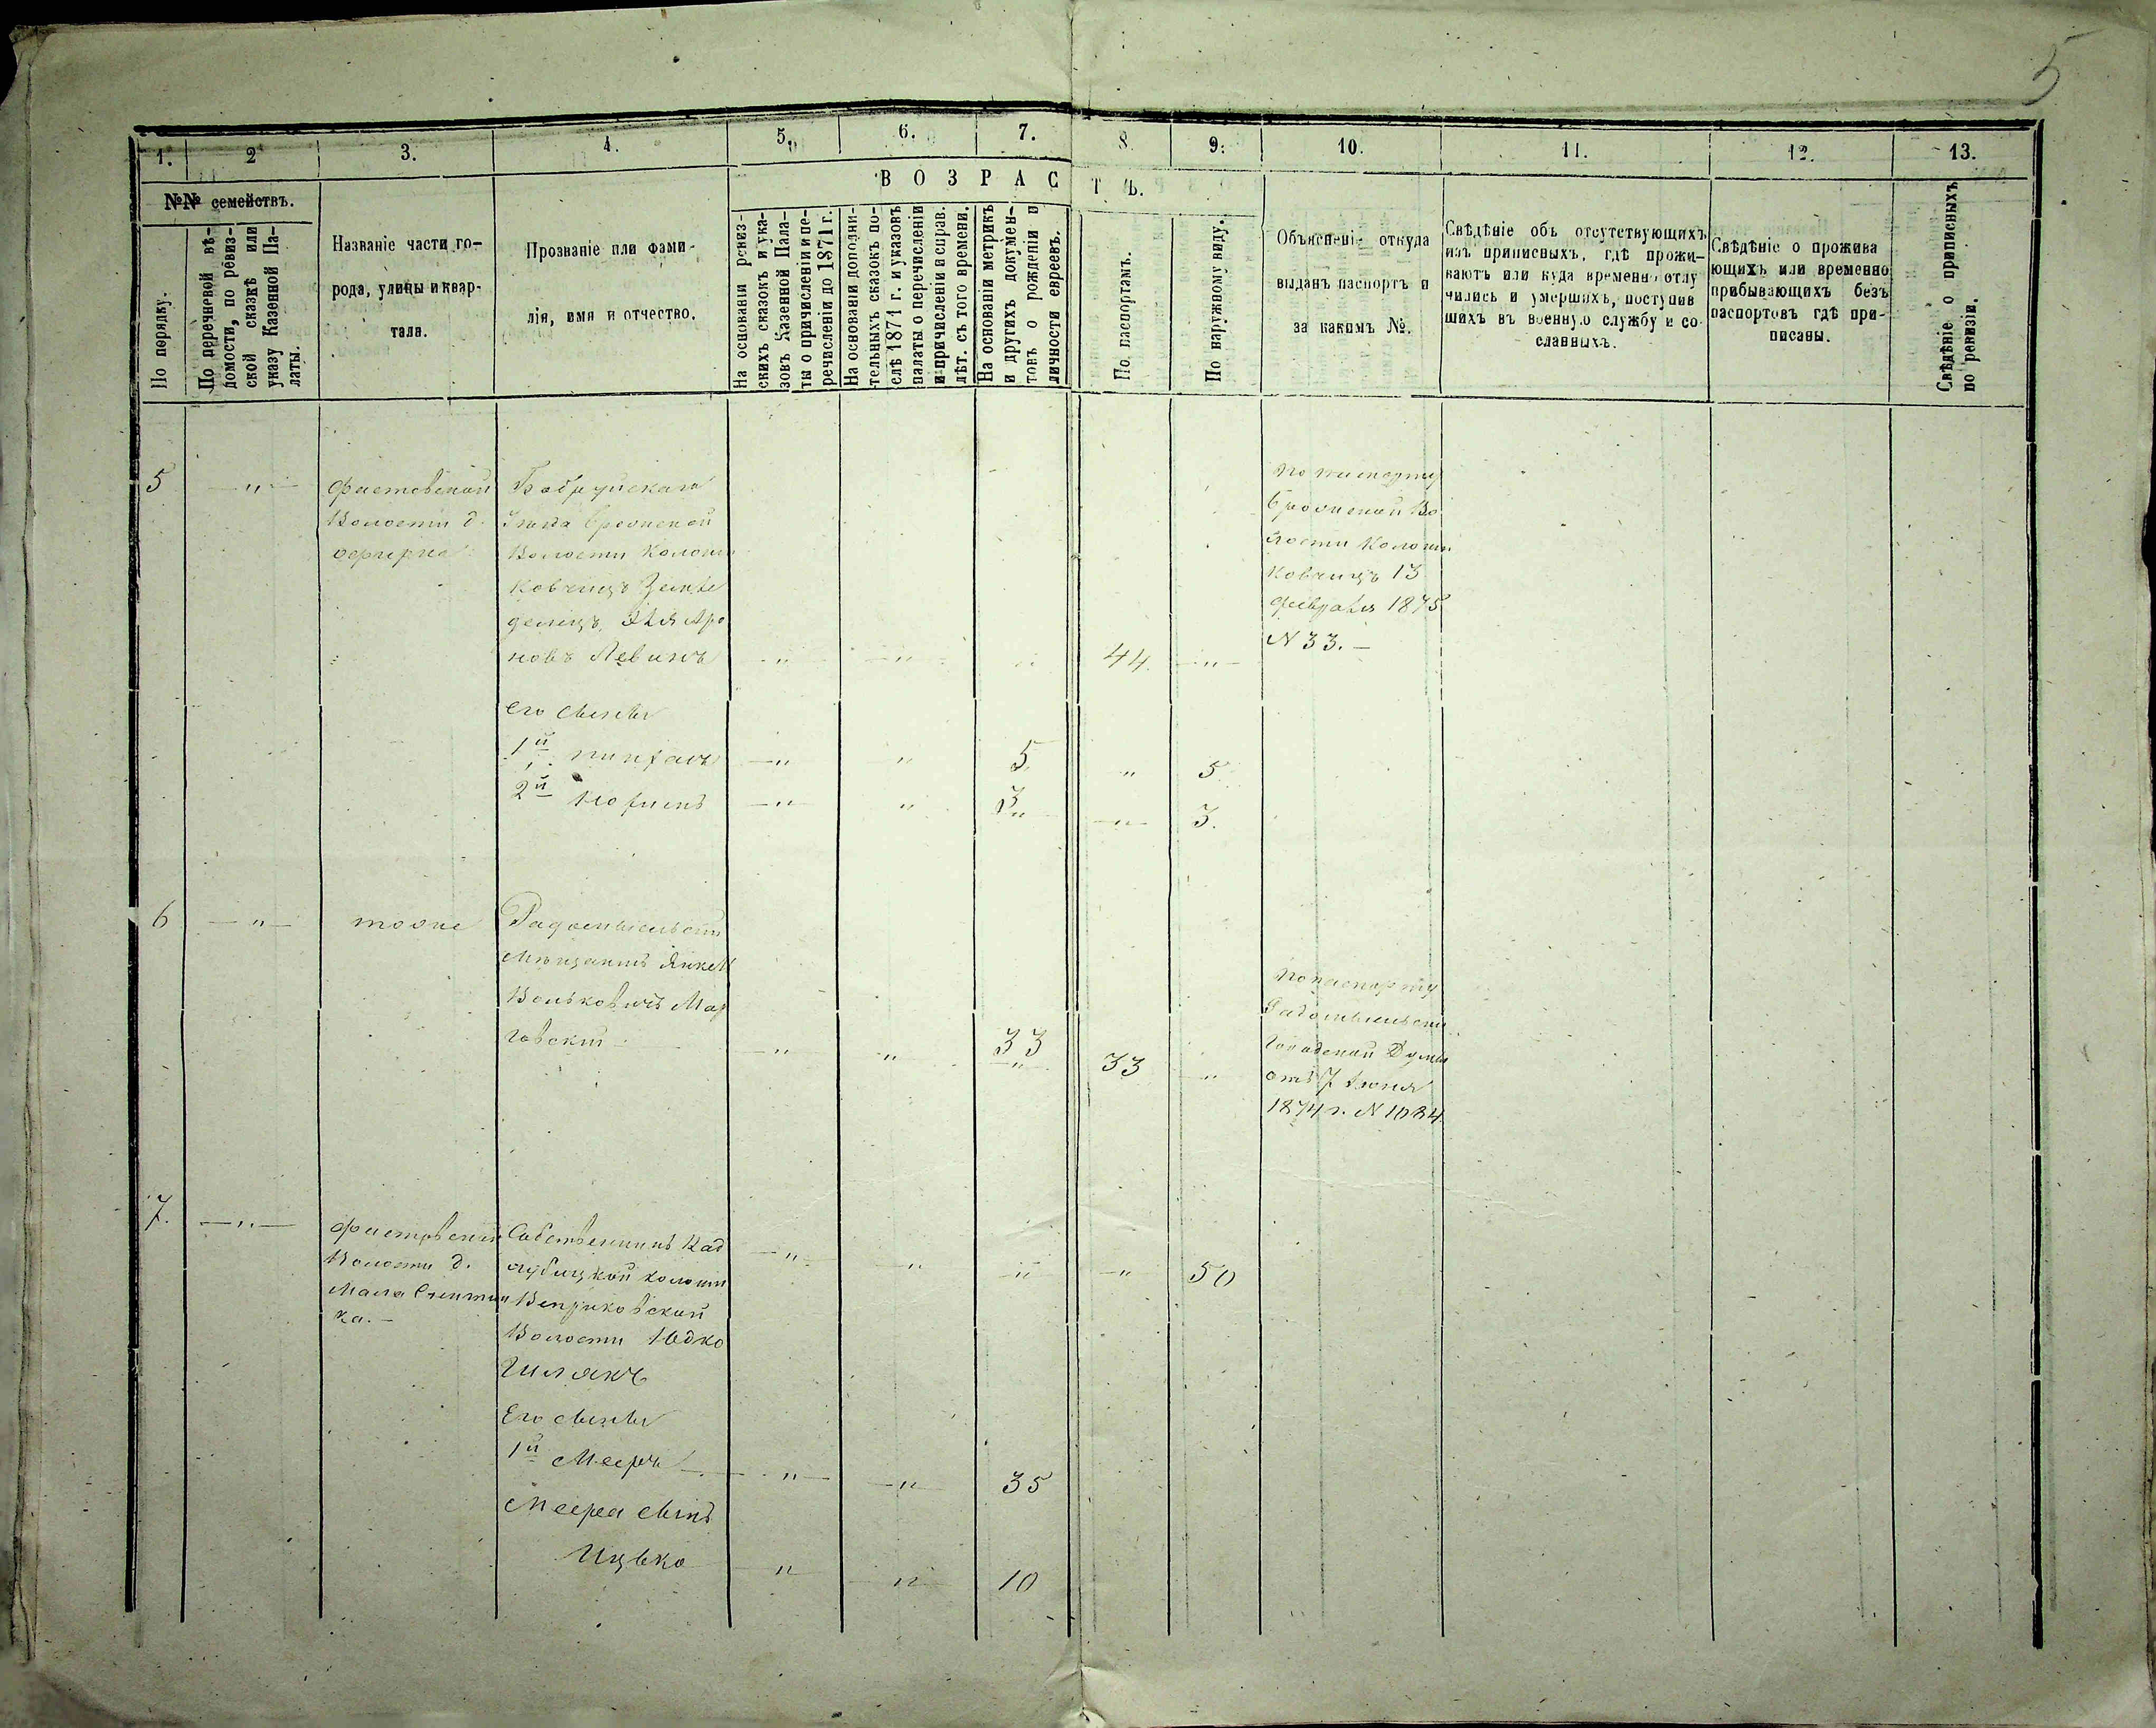 5
1. 2 3. 4. 5. 6. 7. 8. 9. 10. 11. 12. 13.
№№ семействъ.
По порядку.
По перечневой вѣ-
домости, по ревиз-
ской сказкѣ или
указу Казенной Па-
латы.
Названіе части го-
рода, улицы и квар-
тала.
Прозваніе или фами-
лія, имя и отчество.
ВОЗРАСТЪ.
На основаніи ревиз-
скихъ сказокъ и ука-
зовъ Казенной Пала-
ты о причисленіи и пе-
речисленіи до 1871 г.
На основаніи дополни-
тельныхъ сказокъ по-
слѣ 1871 г. и указовъ
палаты о перечисленіи
и причисленіи и исправ.
лѣт. съ того времени.
На основаніи метрикъ
и другихъ докумен-
товъ о рожденіи и
личности евреевъ.
По паспортамъ.
По наружному виду.
Объясненіе откуда
выданъ паспортъ и
за какимъ №.
Свѣдѣніе объ отсутствующихъ
изъ приписныхъ, гдѣ прожи-
ваютъ или куда временно отлу
чились и умершихъ, поступив
шихъ въ военную службу и со
сланныхъ.
Свѣдѣніе о прожива
ющихъ или временно
прибывающихъ безъ
паспортовъ гдѣ при-
писаны.
Свѣдѣніе о приписныхъ
по ревизіи.
5 — " —
Фастовской
Волости д.
Бобруйскаго
Уезда
Волости Колоніи
Ковчицъ Земле
делецъ Эля Аро
новъ Левинъ — " — — " — " 44. — " —
по паспорту
Во
лости Колоніи
Ковчицъ 13
Февраля 1875
N 33. —
Его сыновья
1й — " " 5 " 5.
2й — " — " 3 — " — 3.
6 — " — тоже
Радомысльскій
Мещанинъ Янкел
Вольковичъ Мар
говскій — " — " 33 33 "
По паспорту
Радомысльской
Городской Думы
отъ 7 Іюня
1874 г. N 1084
7. — " —
Фастовской
Волости д.
Мала Снетин
ка. —
Собственникъ Кад
лубицкой колоніи
Веприковской
Волости Юдко
— " — — " — " — " — 50
Его сыновья
1й Мееръ — — " — — " — 35
Меера сынъ
Ицько " — " — 10